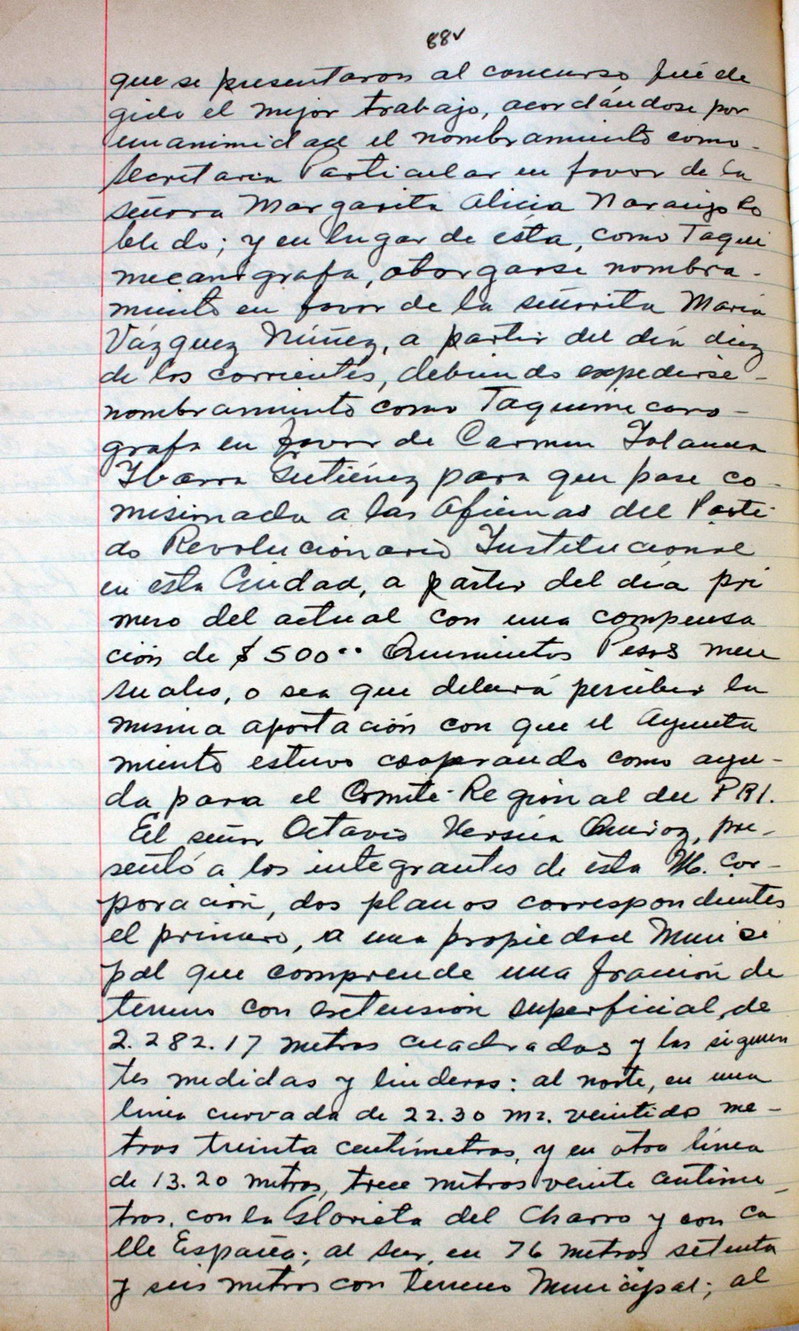 88v
que se presentaron al concurso fué de
gido el mejor trabajo, acordándose por
unanimidad el nombramiento como-
Secretaria Particular en favor de la
señora Margarita Alicia Naranjo Ro
bledo; y en lugar de ésta, como Taqui
mecanógrafa, otorgarse nombra-
miento en favor de la señorita María
Vázquez Núñez, a partir del día diez
de los corrientes, debiendo expedirse-
nombramiento como Taquimecano-
grafa en favor de Carmen Yolanda
Ybarra Gutiérrez para que pase co-
misionada a las Oficinas del Parti-
do Revolucionario Institucional
en esta Ciudad, a partir del día pri
mero del actual con una compensa
ción de $500.00 Quinientos Pesos men
suales, o sea que deberá percibir la
misma aportación con que el Ayunta
miento estuvo cooperando como ayu-
da para el Comité Regional del PRI.
El señor Octavio Quiroz, pre-
sentó a los integrantes de esta H. Cor-
poración, dos planos correspondientes
el primero, a una propiedad Munici
pal que comprende una fracción de
terreno con extensión superficial de
2.282.17 metros cuadrados y las siguien
tes medidas y linderos: al norte, en una
línea curvada de 22.30 mz. veintidos me-
tros treinta centímetros, y en otra línea
de 13.20 metros, trece metros veinte centíme-
tros, con la Glorieta del Charro y con ca
lle España; al sur, en 76 metros setenta
y seis metros con terreno Municipal; al